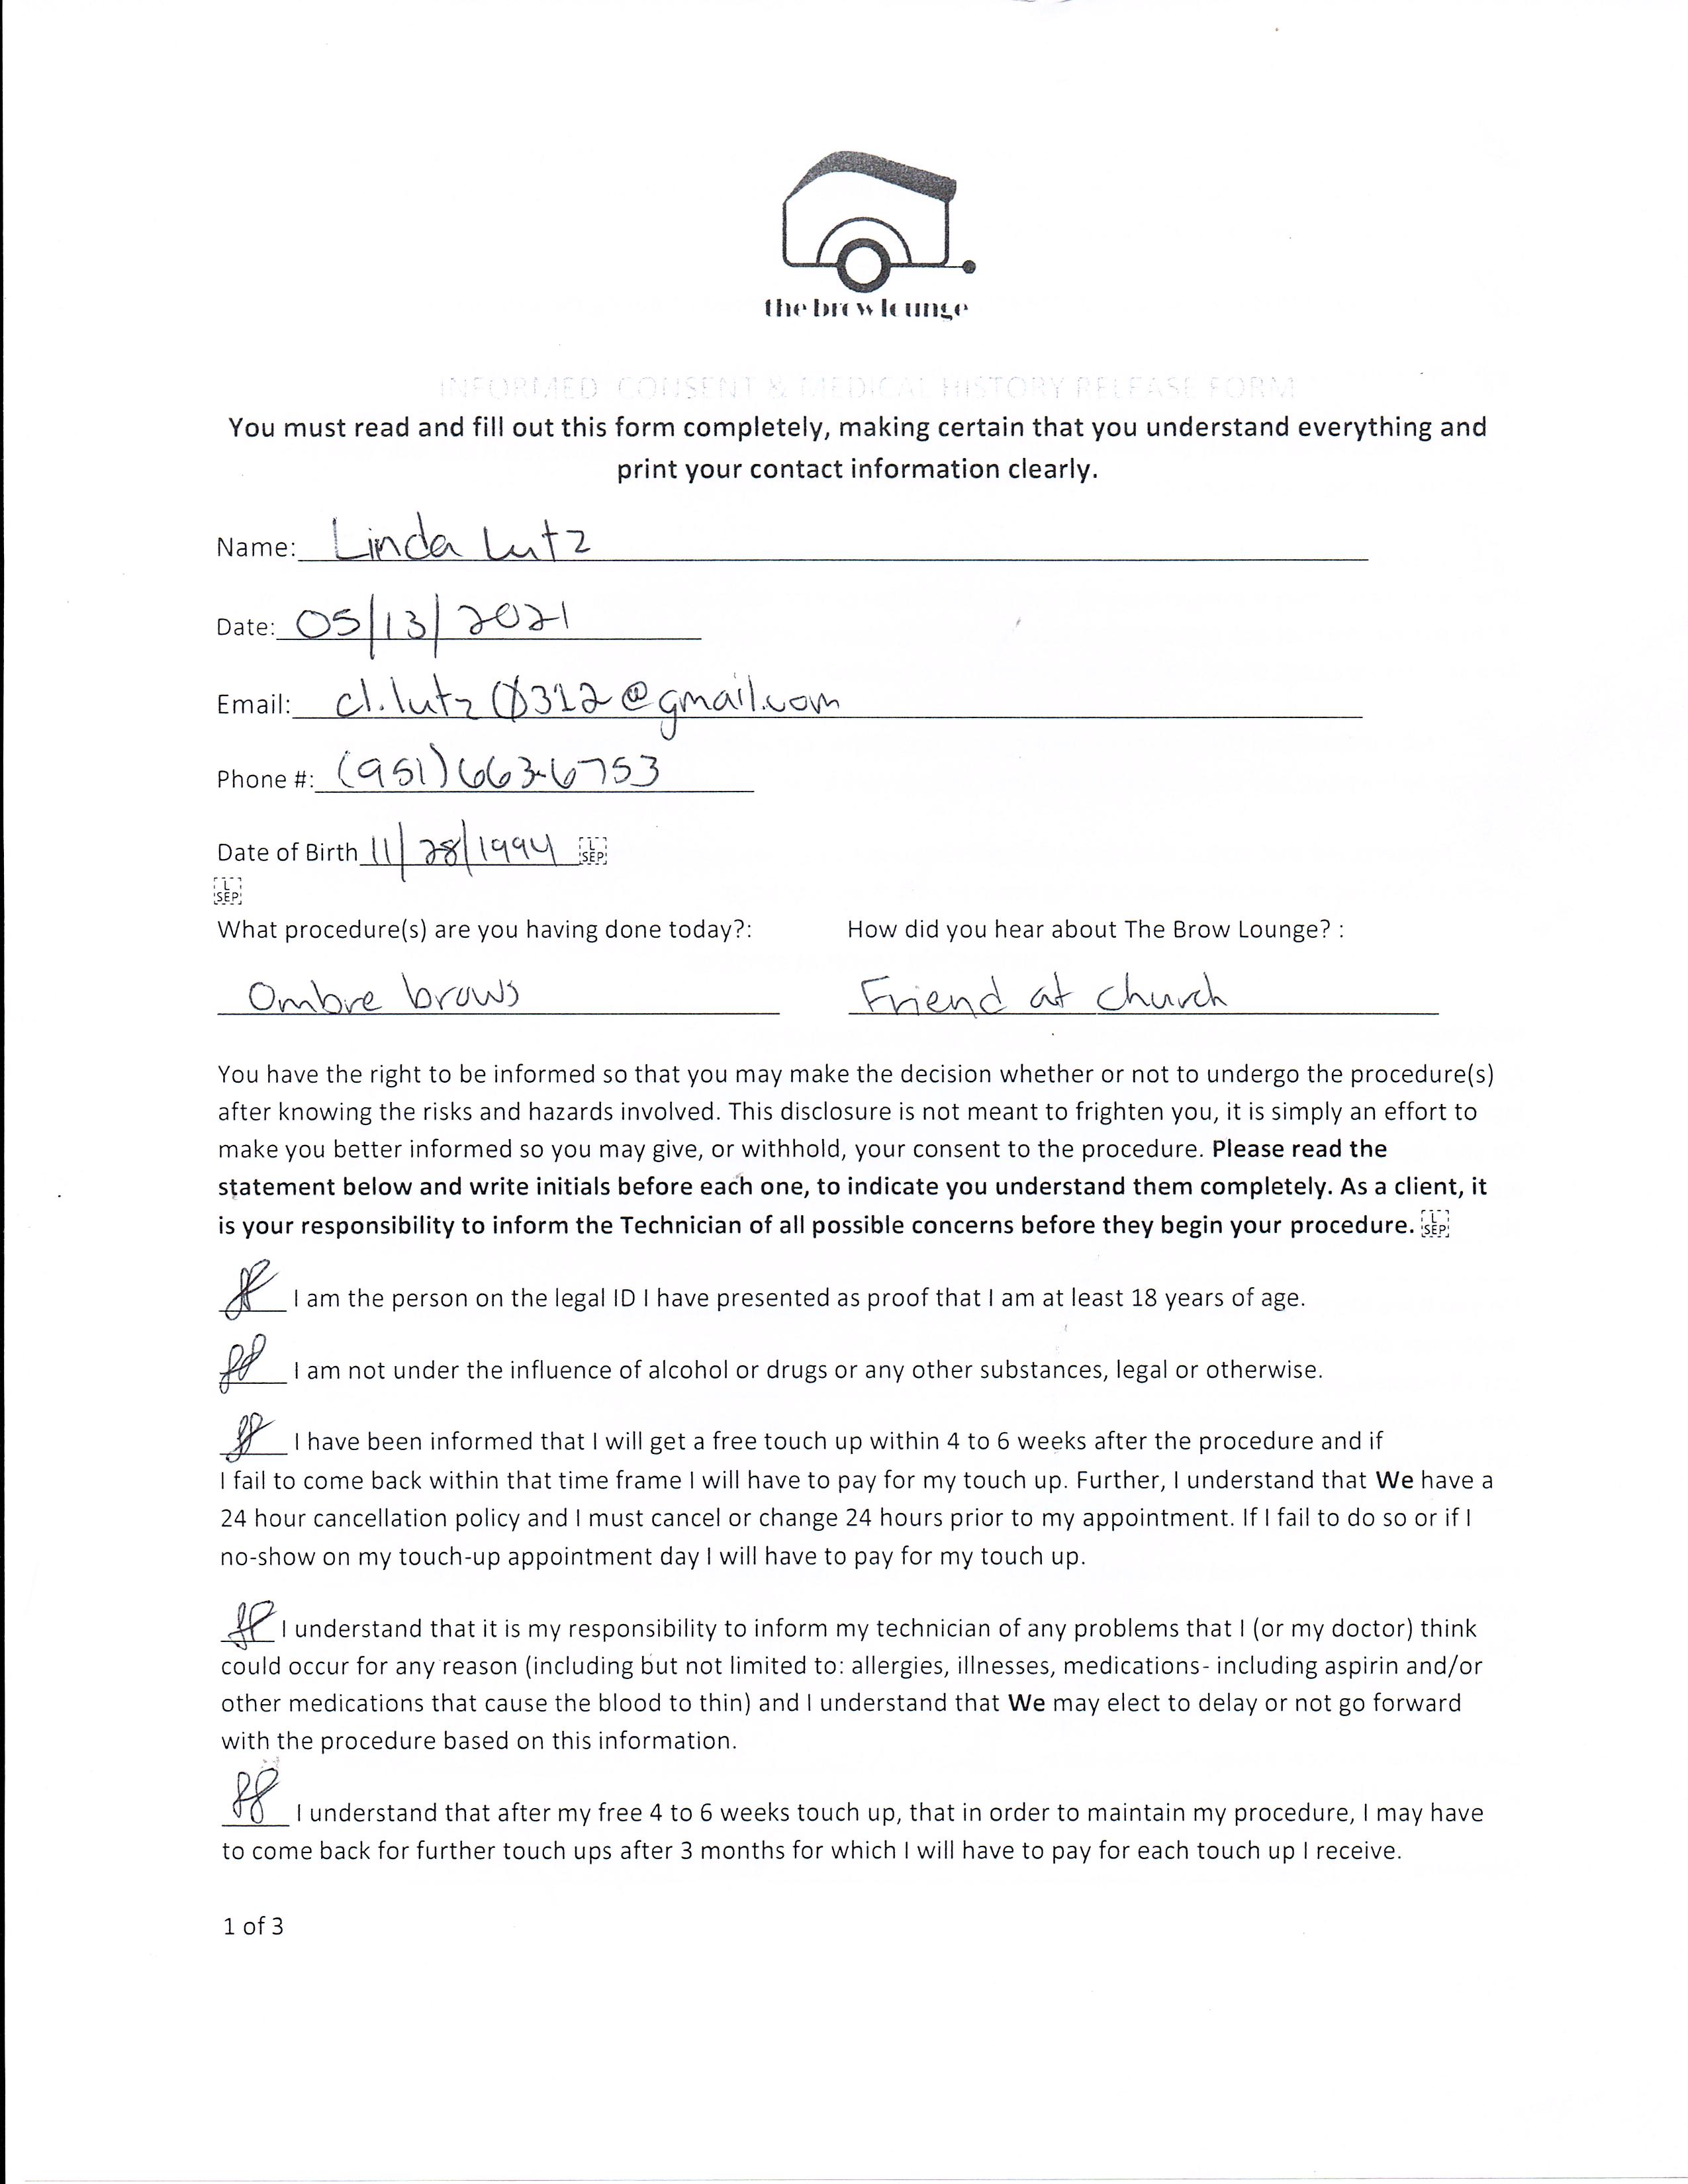 the brow lounge
INFORMED CONSENT & MEDICAL HISTORY RELEASE FORM
You must read and fill out this form completely, making certain that you understand everything and
print your contact information clearly.
Name: Linda Lutz
Date: 05/13/2021
Email: cl.lutz0312@gmail.com
Phone #: (951)663-6753
Date of Birth 11/28/1994 L SEP
L SEP
What procedure(s) are you having done today?: How did you hear about The Brow Lounge? :
Ombre brows Friend at church
You have the right to be informed so that you may make the decision whether or not to undergo the procedure(s)
after knowing the risks and hazards involved. This disclosure is not meant to frighten you, it is simply an effort to
make you better informed so you may give, or withhold, your consent to the procedure. Please read the
statement below and write initials before each one, to indicate you understand them completely. As a client, it
is your responsibility to inform the Technician of all possible concerns before they begin your procedure. L SEP
I am the person on the legal ID I have presented as proof that I am at least 18 years of age.
I am not under the influence of alcohol or drugs or any other substances, legal or otherwise.
I have been informed that I will get a free touch up within 4 to 6 weeks after the procedure and if
I fail to come back within that time frame I will have to pay for my touch up. Further, I understand that We have a
24 hour cancellation policy and I must cancel or change 24 hours prior to my appointment. If I fail to do so or if I
no-show on my touch-up appointment day I will have to pay for my touch up.
I understand that it is my responsibility to inform my technician of any problems that I (or my doctor) think
could occur for any reason (including but not limited to: allergies, illnesses, medications- including aspirin and/or
other medications that cause the blood to thin) and I understand that We may elect to delay or not go forward
with the procedure based on this information.
I understand that after my free 4 to 6 weeks touch up, that in order to maintain my procedure, I may have
to come back for further touch ups after 3 months for which I will have to pay for each touch up I receive.
1 of 3